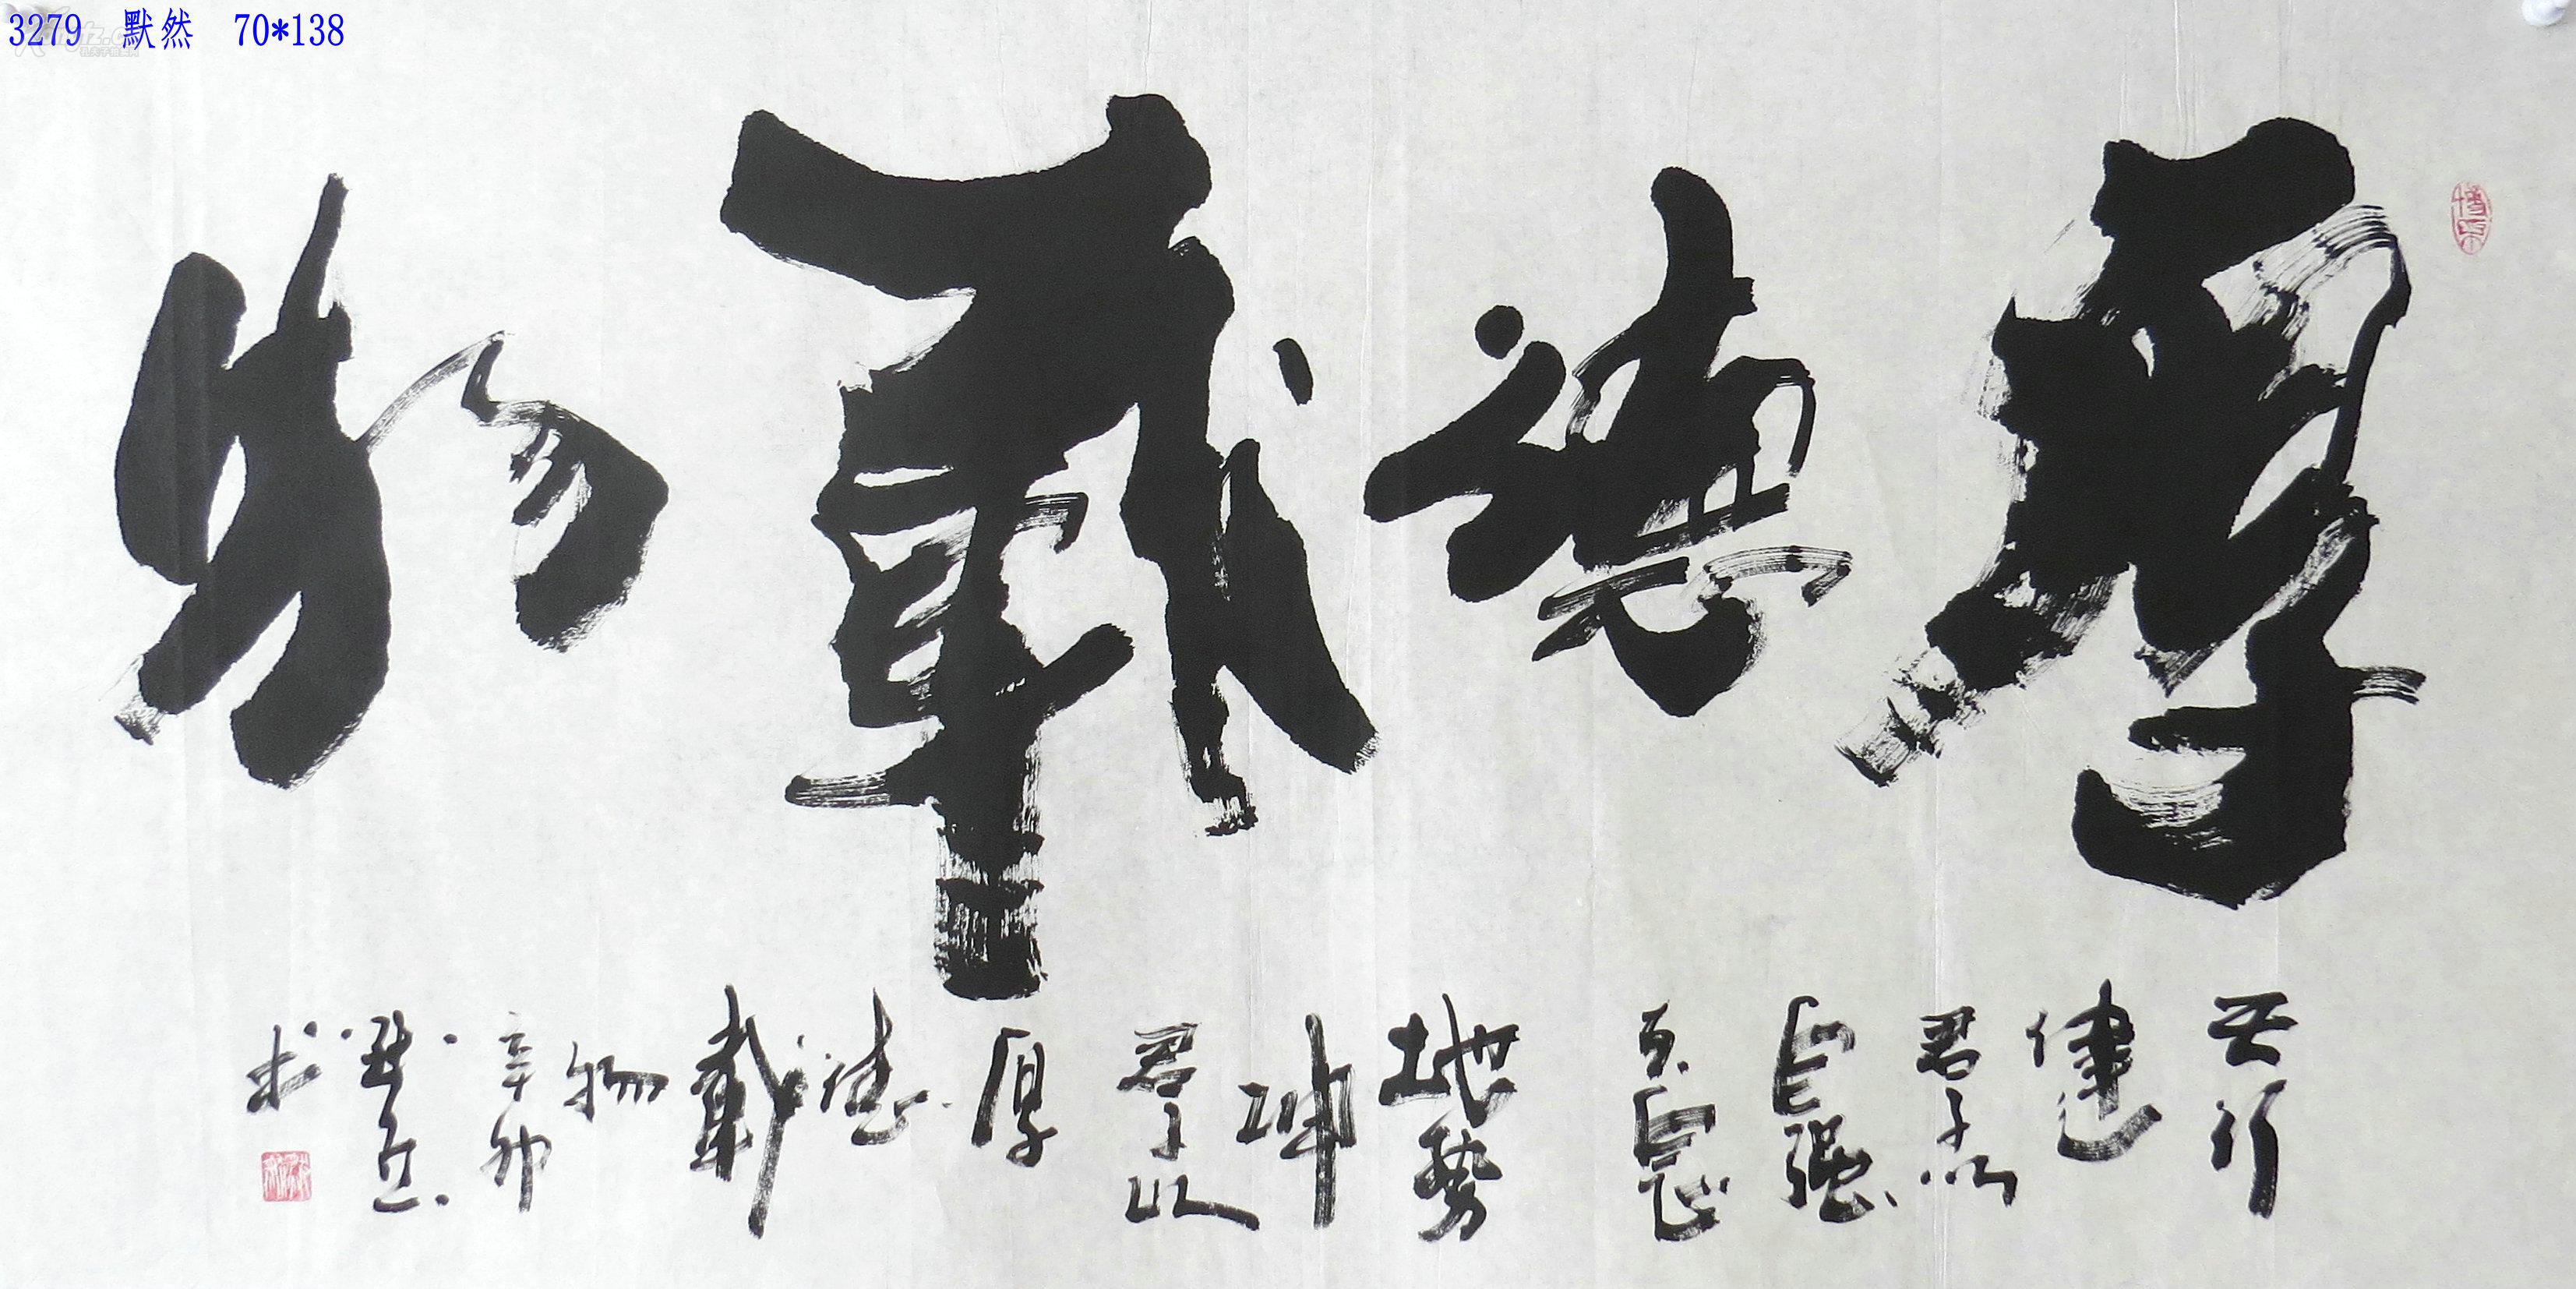 3279 默然 70*138
厚德载物
天行
健
君子以
自强
不息
地势
坤
君子以
厚
德
载
物
辛卯